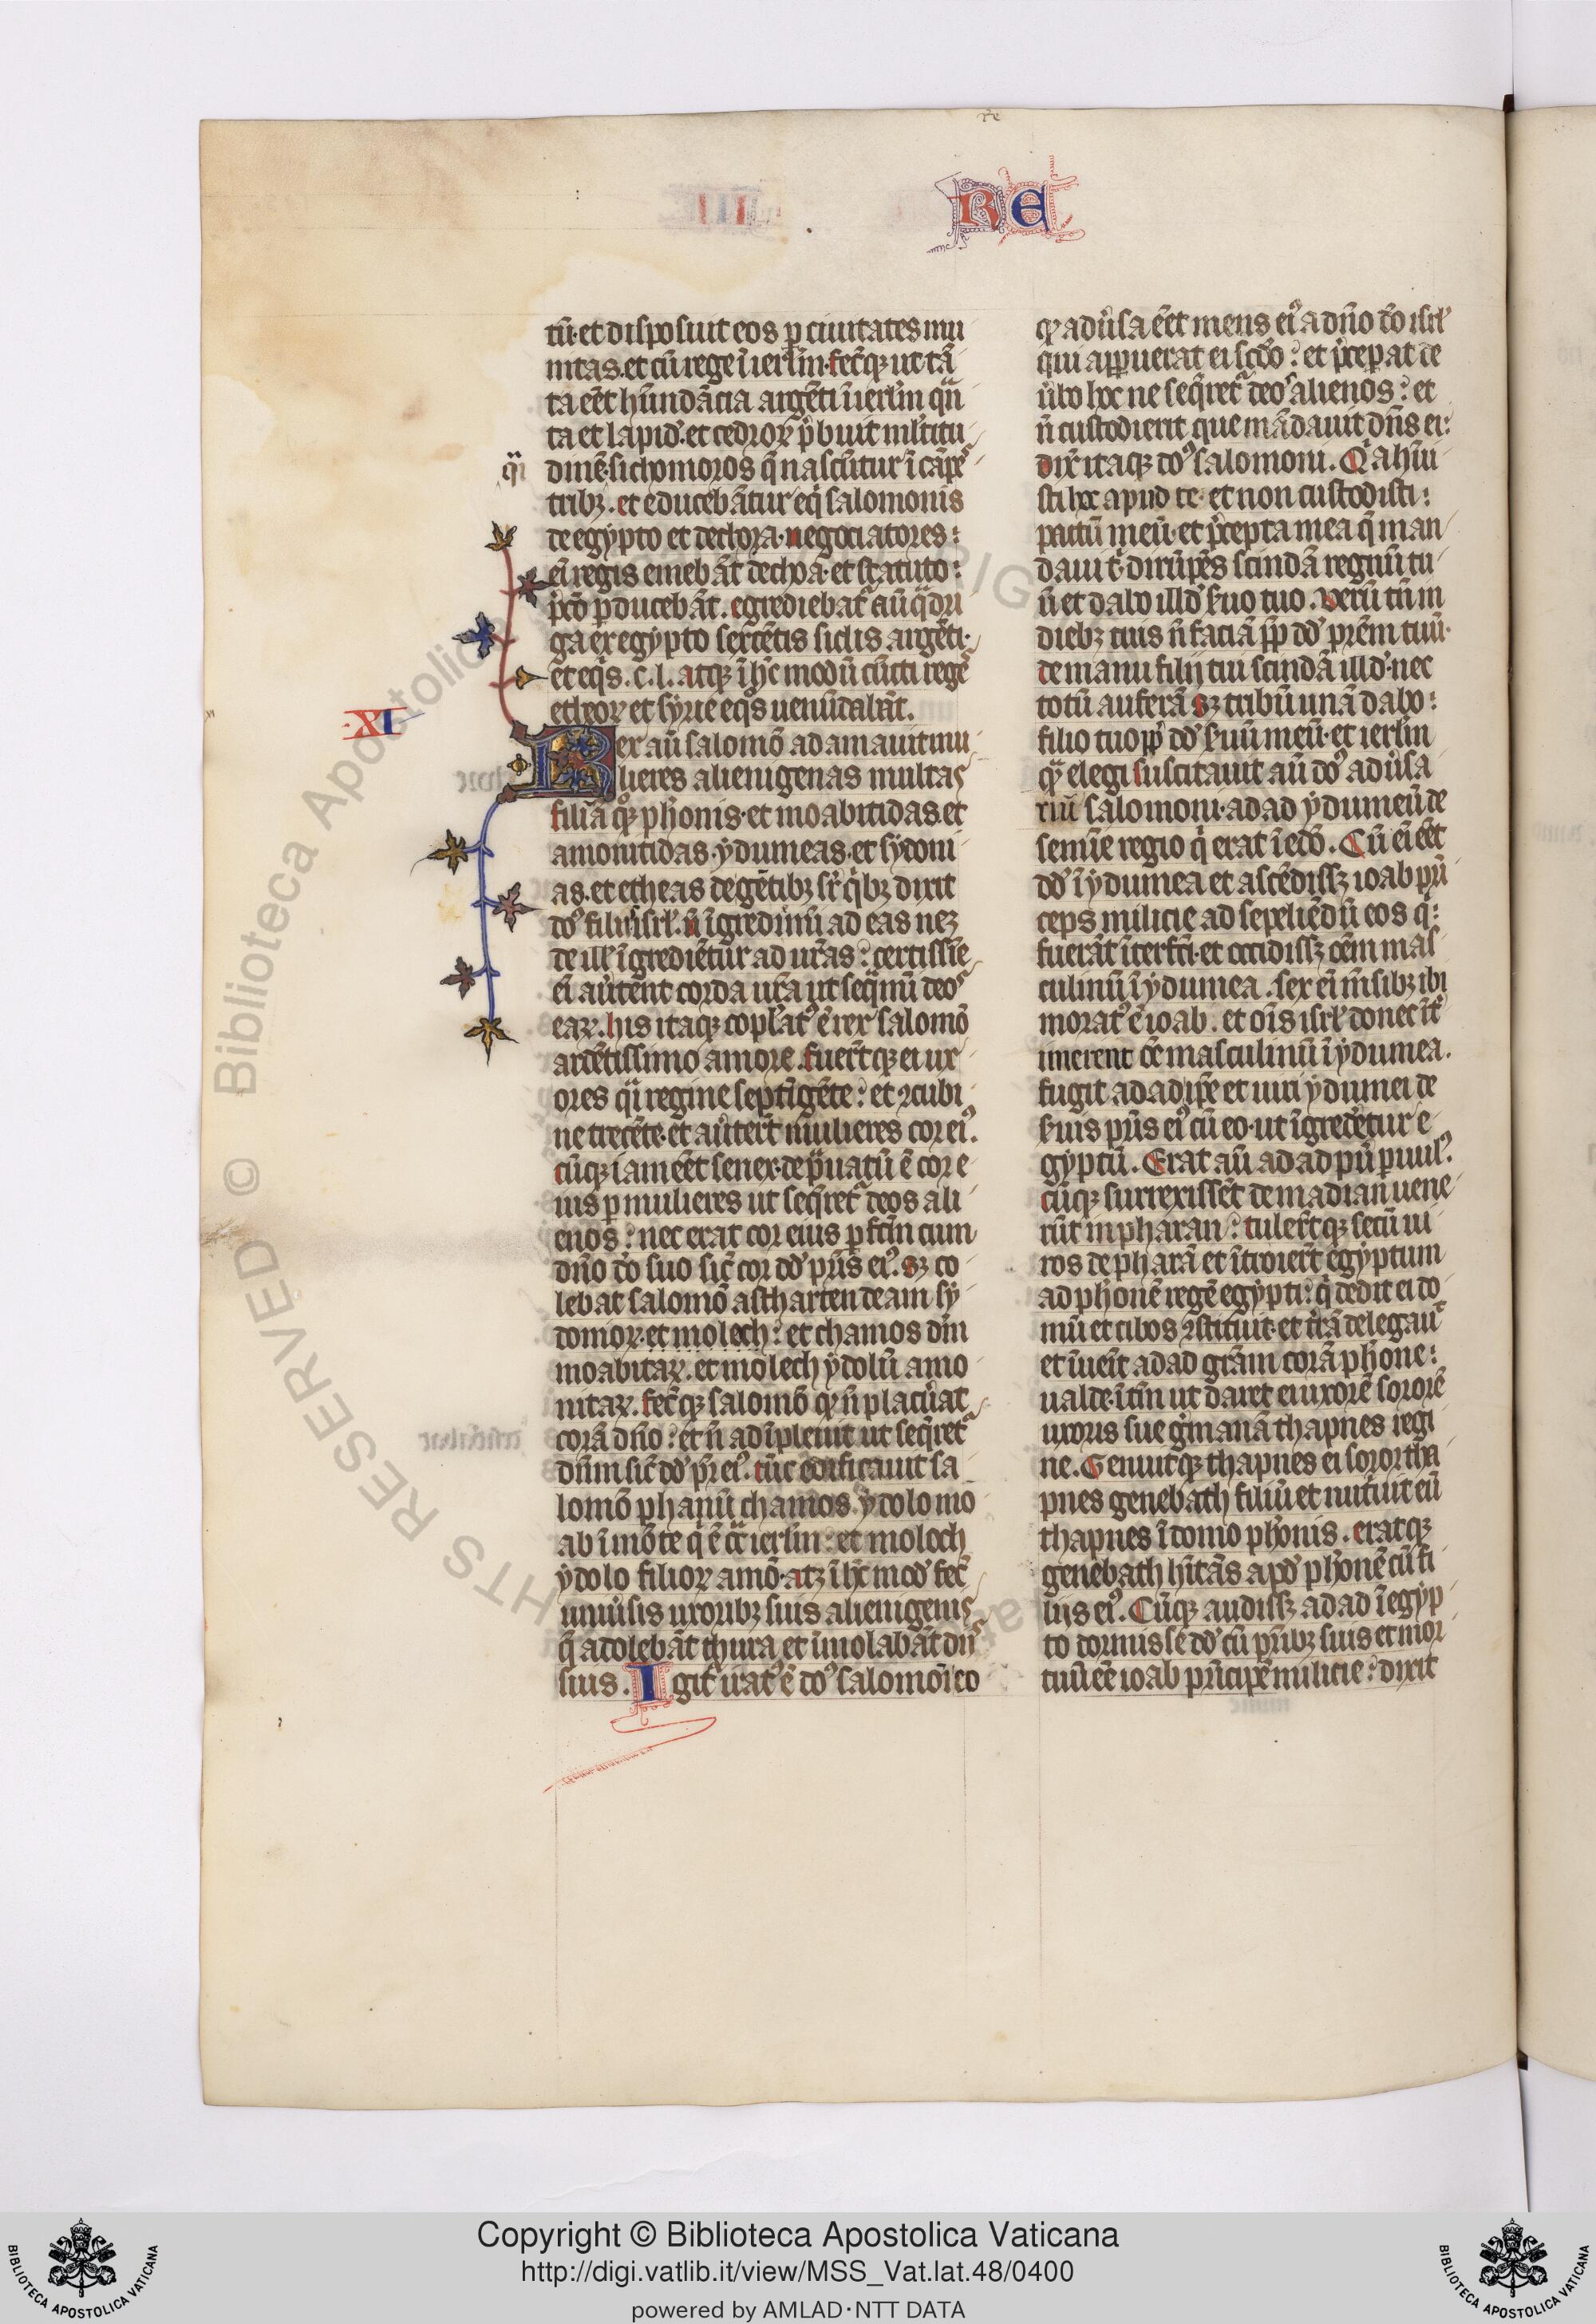 re
RE
tū· et disposuit eos ꝑ ciuitates mu
nitas. et cū rege ī ierl̄m· fec̄qꝫ ut tā
ta eēt hūndācia argēti ī ierl̄m quā
ta et lapid. et cedroꝝ p̄buit ml̄titu
q̄i
dinē· sichomoros q̄ nascūtur ī cāpes
tribꝫ. et educebātur eq̄ salomonis
de egypto et de choa· negociatores
eī regis emebāt de choa· et statuto
p̄cō ꝑducebāt. egrediebat᷑ aū q̄dri
ga ex egypto sexcētis siclis argēti·
et eq̄s. c. l. atqꝫ ī hc̄ modū cūcti reges
etheoꝝ et syrie eq̄s uenūdabāt.
XI
Rex aū salomō adamauit mu
lieres alienigenas multas
filiā qꝫ ph̄onis· et moabitidas. et
amonitidas· ydumeas· et sydoni
as. et etheas de gētibꝫ sr̄ q̄bꝫ dixit
dō filiis isrl̄. n̄ īgredimī ad eas neqꝫ
de ill̄ īgrediētur ad ur̄as: certissīe
eī auertent corda ur̄a ut seq̄mī deos
eaꝝ. his itaqꝫ copl̄at᷒ ē rex salomō
ardētissimo amore. fuer̄tqꝫ ei ux
ores q̄i regine septīgēte: et ꝯcubi
ne trecēte· et auerter̄t mulieres cor ei᷒.
cūqꝫ iam eēt senex· deprauatū ē cor e
ius ꝑ mulieres ut seq̄ret᷑ deos ali
enos: nec erat cor eius ꝑfctm̄ cum
dn̄o dō suo sic̄ cor dd̄ pr̄is ei᷒. sꝫ co
lebat salomō astharten deam sy
donioꝝ· et molech: et chamos dm̄
moabitaꝝ. et molech ydolū amo
nitaꝝ. fec̄qꝫ salomō qꝫ n̄ placu̾at
corā dn̄o: et n̄ adīpleuit ut seq̄ret᷑
dn̄m sic̄ dd̄ pr̄ ei᷒. tūc edificauit sa
lomō phanū chamos ydolo mo
ab ī mōte q̄ ē cont̄ ierl̄m: et moloch
ydolo filioꝝ amō· atqꝫ ī hc̄ mod fec̄
uniu̾sis uxoribꝫ suis alienigenis
q̄ adolebāt thura et īmolabāt diis
suis. Igit᷑ irat᷒ ē dō salomōi eo
qꝫ adu̾sa eēt mens ei᷒ a dn̄o dō isrl̄
qui apparuerat ei scd̄o: et p̄ceperat de
u̾bo hoc ne seq̄ret᷑ deos alienos: et
n̄ custodierit que mādauit dn̄s ei:
dix̄ itaqꝫ dō salomoni. Quia habui
sti hoc apud te· et non custodisti
pactū meū· et p̄cepta mea q̄ man
daui t̄· dirūpēs scindā regnū tu
ū et dabo illd̄ s̾uo tuo. Verū tn̄ in
diebꝫ tuis n̄ faciā ꝓp̄ dd̄ pr̄em tuū·
de manu filij tui scindā illd̄· nec
totū auferā sꝫ tribū unā dabo
filio tuo ꝓp̄ dd̄ s̾uū meū· et ierl̄m
quā elegi suscitauit aū dō adu̾sa
riū salomoni· adad ydumeū de
semīe regio q̄ erat ī edō. Cū eī eēt
dd̄ ī ydumea et ascēdissꝫ ioab prī
ceps milicie ad sepeliēdū eos q̄
fuerāt īterfci· et occidissꝫ oēm mas
culinū ī ydumea. sex eī mēsibꝫ ibi
morat᷒ ē ioab. et oīs isrl̄ donec īt
imerent oē masculinū ī ydumea.
fugit adad ip̄e et uiri ydumei de
s̾uis pr̄is ei᷒ cū eo· ut īgrederetur e
gyptū. Erat aū adad pu̾ paruul᷒.
cūqꝫ surrexissēt de madian uene
rūt in pharan: tuler̄tqꝫ secū ui
ros de pharā et ītroier̄t egyptum
ad ph̄onē regē egypti: q̄ dedit ei do
mū et cibos ꝯstituit· et t̾rā delegauit
et īuēit adad gr̄am corā ph̄one
ualde· ītm̄ ut daret ei uxorē sororē
uxoris sue g̾manā thaphnes regi
ne. Genuitqꝫ thapnes ei soror tha
pnes genebath filiū et nut̄uit eū
thapnes ī domo ph̄onis. eratqꝫ
genebath hītās apd̄ ph̄onē cū fi
liis ei᷒. Cūqꝫ audissꝫ adad ī egyp
to dormisse dd̄ cū pr̄ibꝫ suis et mor
tuū eē ioab prīcipē milicie: dixit
Copyright © Biblioteca Apostolica Vaticana
http://digi.vatlib.it/view/MSS_Vat.lat.48/0400
powered by AMLAD·NTT DATA
BIBLIOTECA APOSTOLICA VATICANA
BIBLIOTECA APOSTOLICA VATICANA